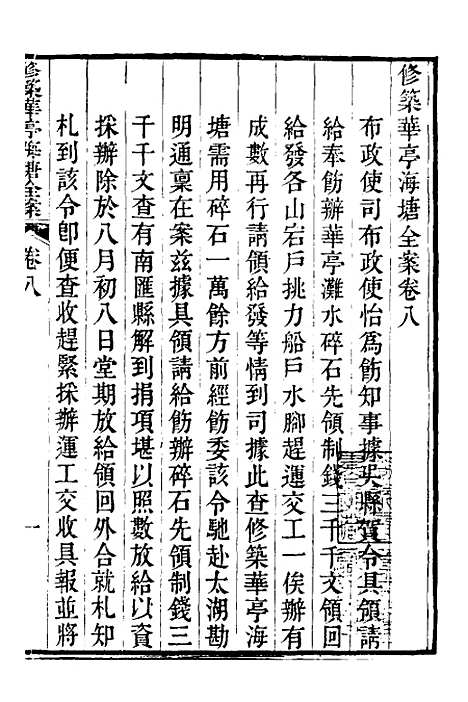 修築華亭海塘全案卷八
布政使司布政使怡爲飭知事據吳縣賀令具領請
給奉飭辦華亭灘水碎石先領制錢三千千文領回
給發各山宕戶挑力船戶水腳趕運交工一俟辦有
成數再行請領給發等情到司據此查修築華亭海
塘需用碎石一萬餘方前經飭委該令馳赴太湖勘
明通稟在案茲據具領請給飭辦碎石先領制錢三
千千文查有南匯縣解到捐項堪以照數放給以資
採辦除於八月初八日堂期放給領回外合就札知
札到該令卽便查收趕緊採辦運工交收具報並將
修築華亭海塘全案
卷八
一